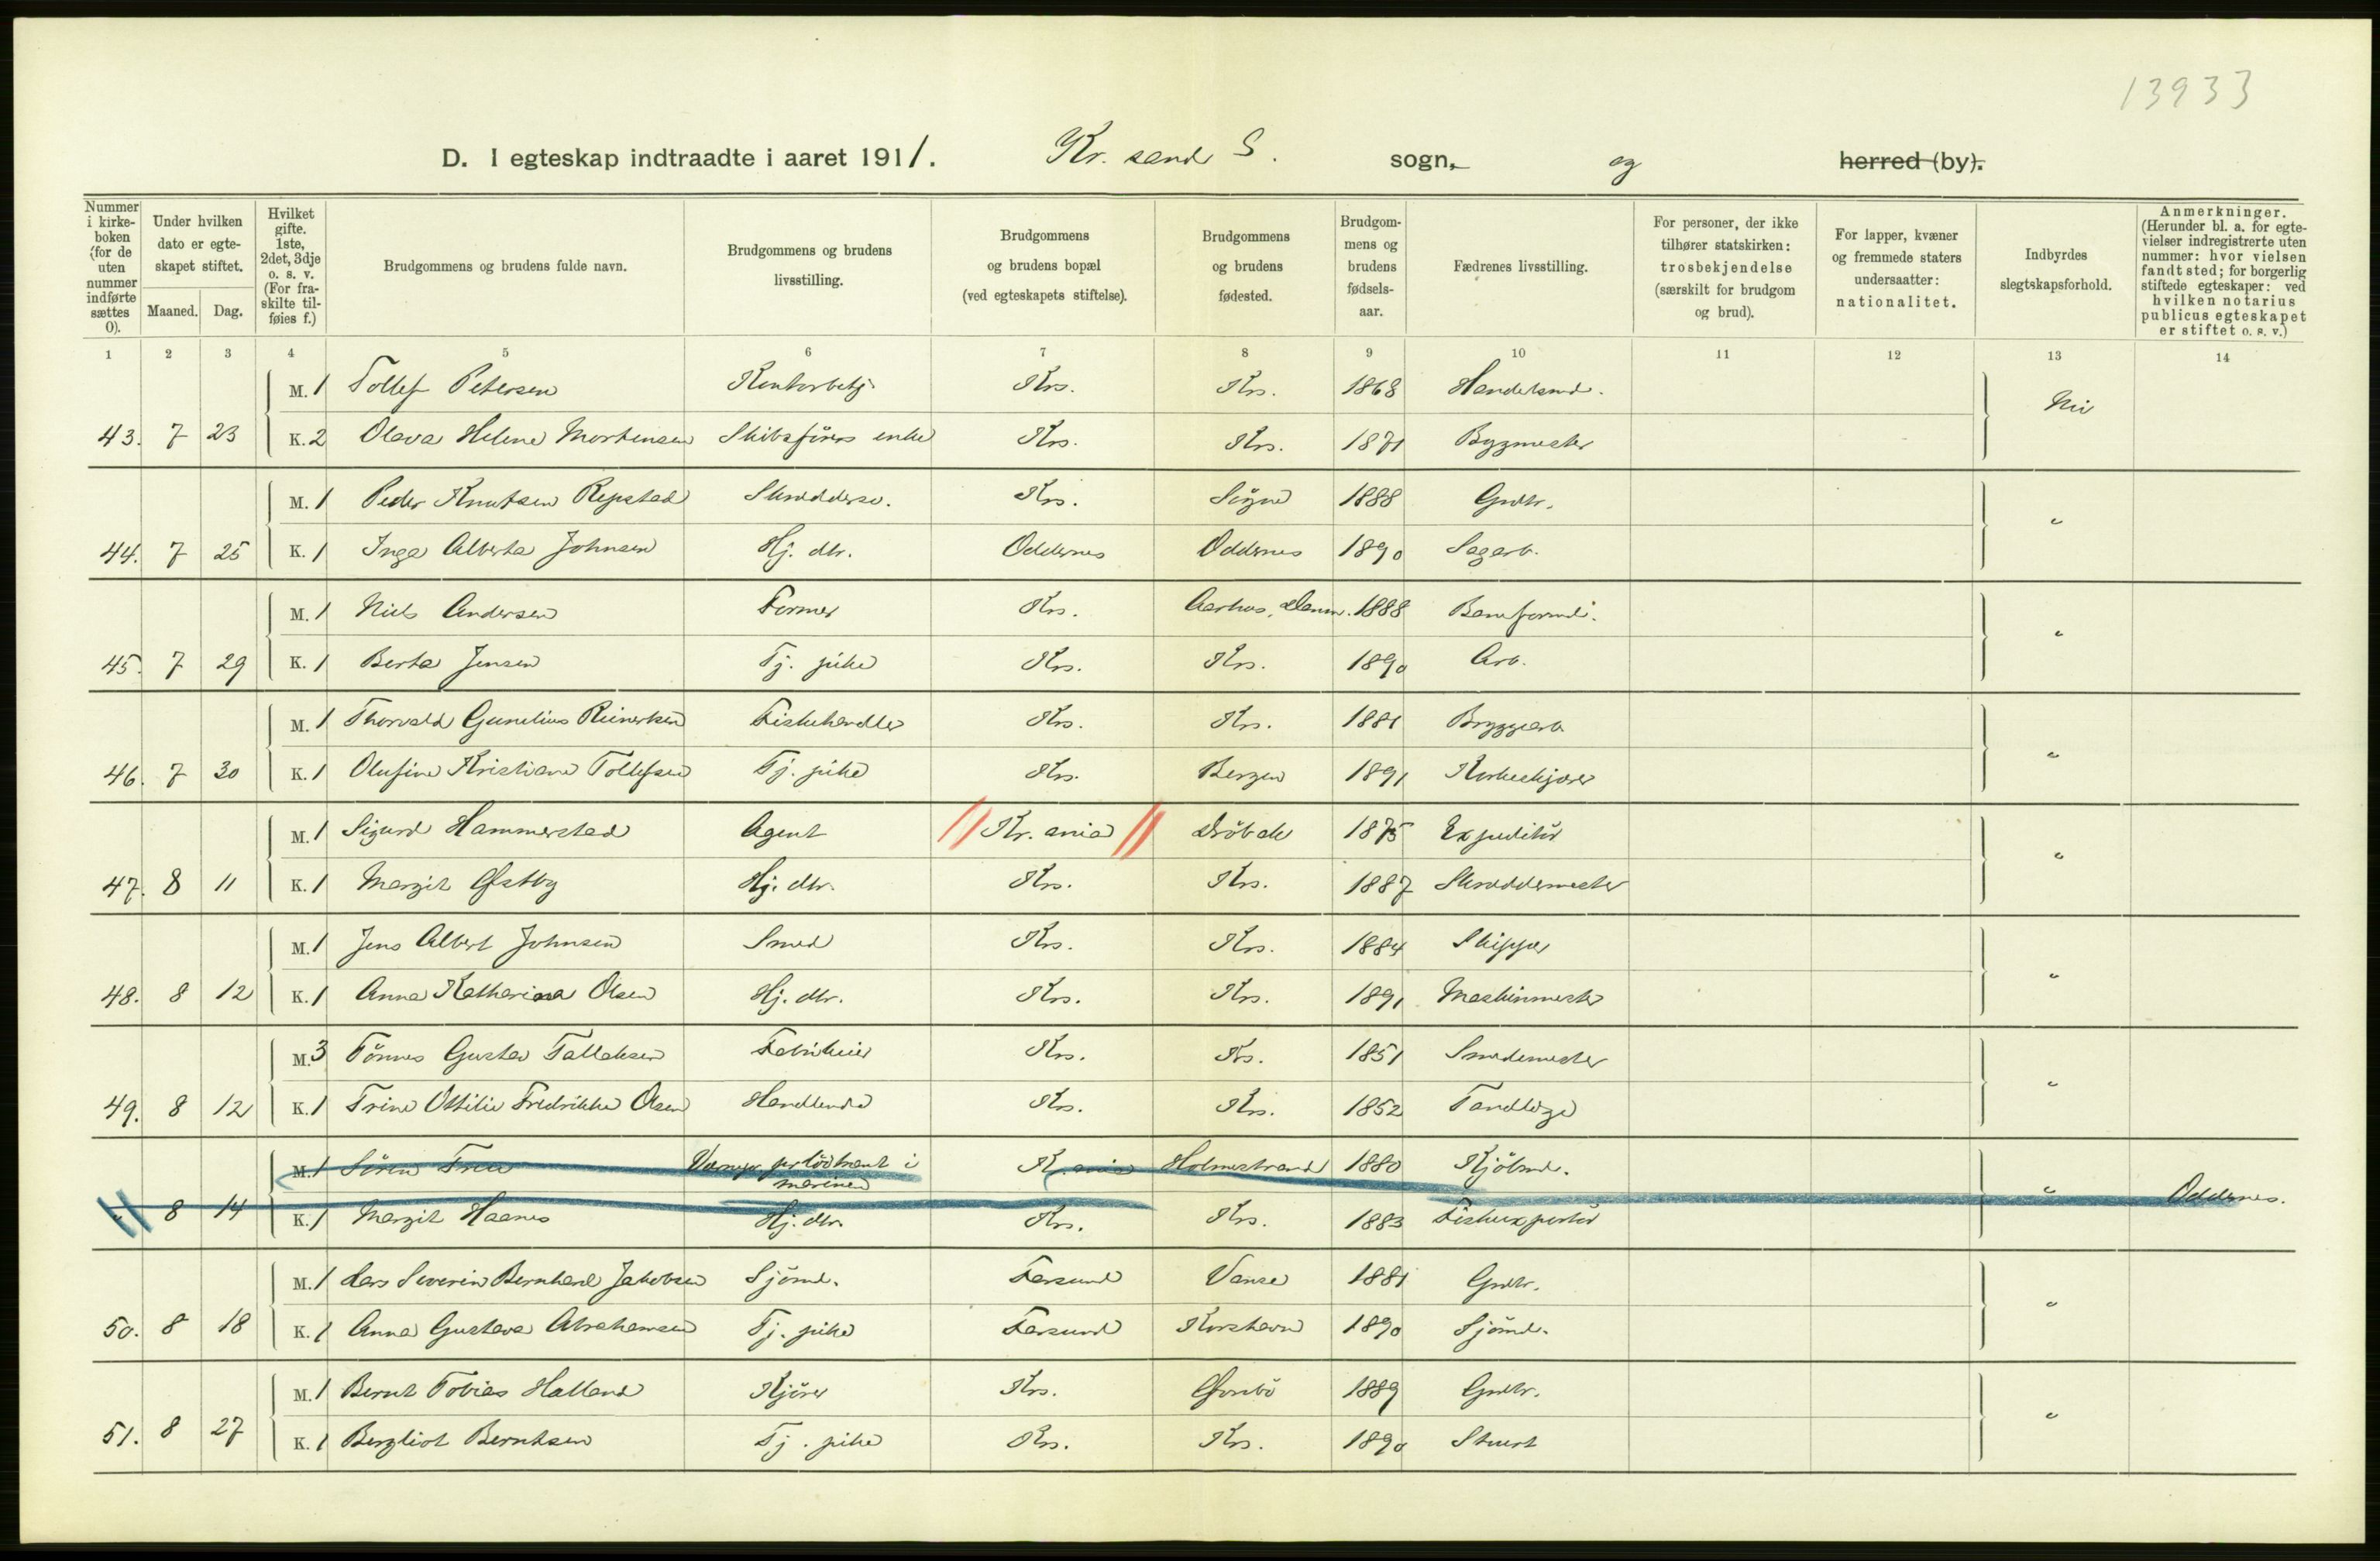 13933
D. I egteskap indtraadte i aaret 1911. Kr. sand S. sogn, og herred (by).
Nummer i kirkeboken (for de uten nummer indførte sættes 0).
Under hvilken dato er egteskapet stiftet.
Maaned. Dag.
Hvilket gifte. 1ste, 2det, 3dje o. s. v. (For fraskilte tilføies f.)
Brudgommens og brudens fulde navn.
Brudgommens og brudens livsstilling.
Brudgommens og brudens bopæl (ved egteskapets stiftelse).
Brudgommens og brudens fødested.
Brudgommens og brudens fødselsaar.
Fædrenes livsstilling.
For personer, der ikke tilhører statskirken: trosbekjendelse (særskilt for brudgom og brud).
For lapper, kvæner og fremmede staters undersaatter: nationalitet.
Indbyrdes slegtskapsforhold.
Anmerkninger. (Herunder bl. a. for egtevielser indregistrerte uten nummer: hvor vielsen fandt sted; for borgerlig stiftede egteskaper: ved hvilken notarius publicus egteskapet er stiftet o. s. v.)
1 2 3 4 5 6 7 8 9 10 11 12 13 14
M. 1 Tollef Petersen Kontorbetj. Krs. Krs. 1868 Handelsmd. Nei
43. 7 23 K. 2 Olava Helene Mortensen Skibsførers enke Krs. Krs. 1871 Bygmester
M. 1 Peder Knutsen Repstad Skræddersv. Krs. Søgne 1888 Grdbr. "
44. 7 25 K. 1 Inga Alberta Johnsen Hj. dtr. Oddernes Oddernes 1890 Sagarb.
M. 1 Niels Andersen Former Krs. Aarhus, Danm. 1888 Baneformd. "
45. 7 29 K. 1 Berta Jensen Tj. pike Krs. Krs. 1890 Arb.
M. 1 Thorvald Gunelius Reinertsen Fiskehandler Krs. Krs. 1881 Bryggearb. "
46. 7 30 K. 1 Olufine Kristiane Tollefsen Tj. pike Krs. Bergen 1891 Korkeskjærer
M. 1 Sigurd Hammerstad Agent Kr. ania Drøbak 1875 Expeditør "
47. 8 11 K. 1 Margit Østby Hj. dtr. Krs. Krs. 1887 Skræddermester
M. 1 Jens Albert Johnsen Smed Krs. Krs. 1884 Skipper "
48. 8 12 K. 1 Anna Katharina Olsen Hj. dtr. Krs. Krs. 1891 Maskinmester
M. 3 Tønnes Gustav Tallaksen Fabrikeier Krs. Krs. 1851 Smedemester "
49. 8 12 K. 1 Trine Ottilie Fredrikke Olsen Handlende Krs. Krs. 1852 Tandlæge
M. 1 Sören premiärløitnant i marinen Kr. ania Holmestrand 1880 Kjøbmd. "
8 14 K. 1 Margit Haanes Hj. dtr. Krs. Krs. 1883 Fiskeexportør Oddernes.
M. 1 Lars Severin Bernhard Jakobsen Sjømd. Farsund Vanse 1881 Grdbr. "
50. 8 18 K. 1 Anna Gustava Abrahamsen Tj. pike Farsund Korshavn 1890 Sjømd.
M. 1 Bernt Tobias Halland Kjører Krs. 1889 Grdbr. "
51. 8 27 K. 1 Bergliot Berntsen Tj. pike Krs. Krs. 1890 Stuert